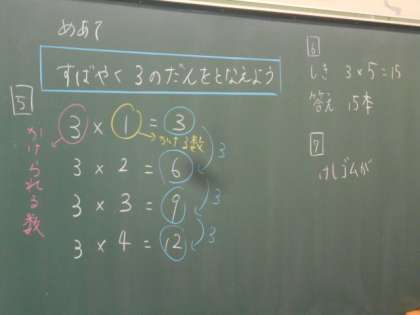 めあて
すばやく3のだんをとなえよう
5
3 × 1 = 3
かけられる数
かける数
3 × 2 = 6
3
3 × 3 = 9
3
3 × 4 = 12
3
6
しき 3×5=15
答え 15本
7
けしゴムが